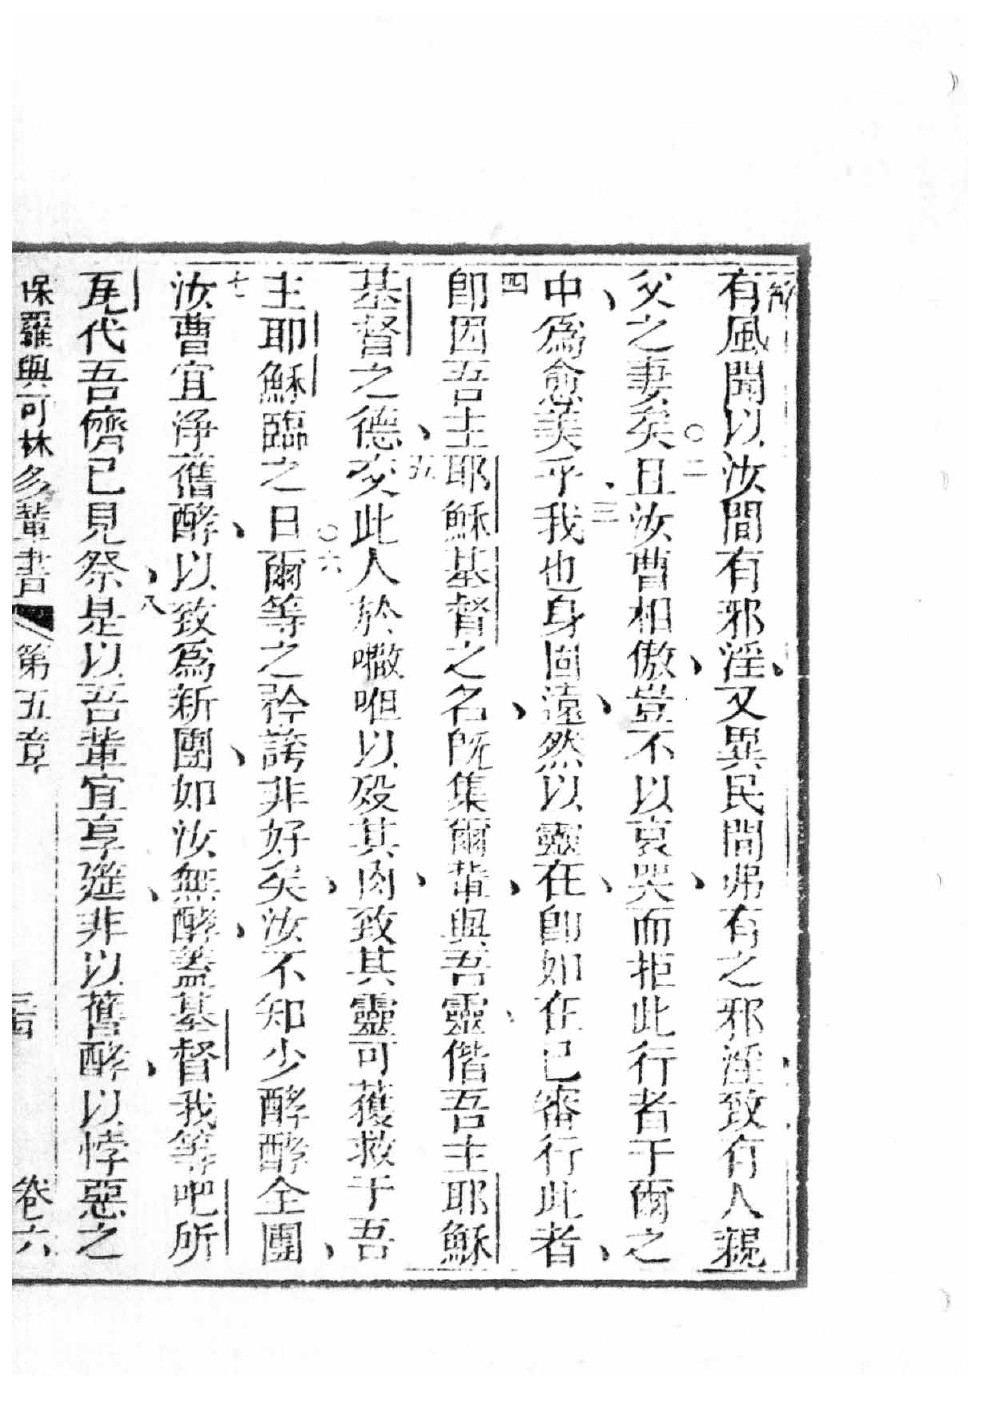 有風聞以汝間有邪淫又異民間弗有之邪淫致有人親
父之妻矣○二且汝曹相傲豈不以哀哭而拒此行者于爾之
中為愈美乎三我也身固遠然以靈在即如在已審行此者
四即因吾主耶穌基督之名既集爾輩與吾靈偕吾主耶穌
基督之德五交此人於嗷呾以殁其肉致其靈可獲救于吾
主耶穌臨之日○六爾等之矜誇非好矣汝不知少酵酵全團
七汝曹宜淨舊酵以致為新團如汝無酵蓋基督我等吧所
瓦代吾儕已見祭八是以吾輩宜享筵非以舊酵以悖惡之
保羅與可林多輩書 第五章 卷六